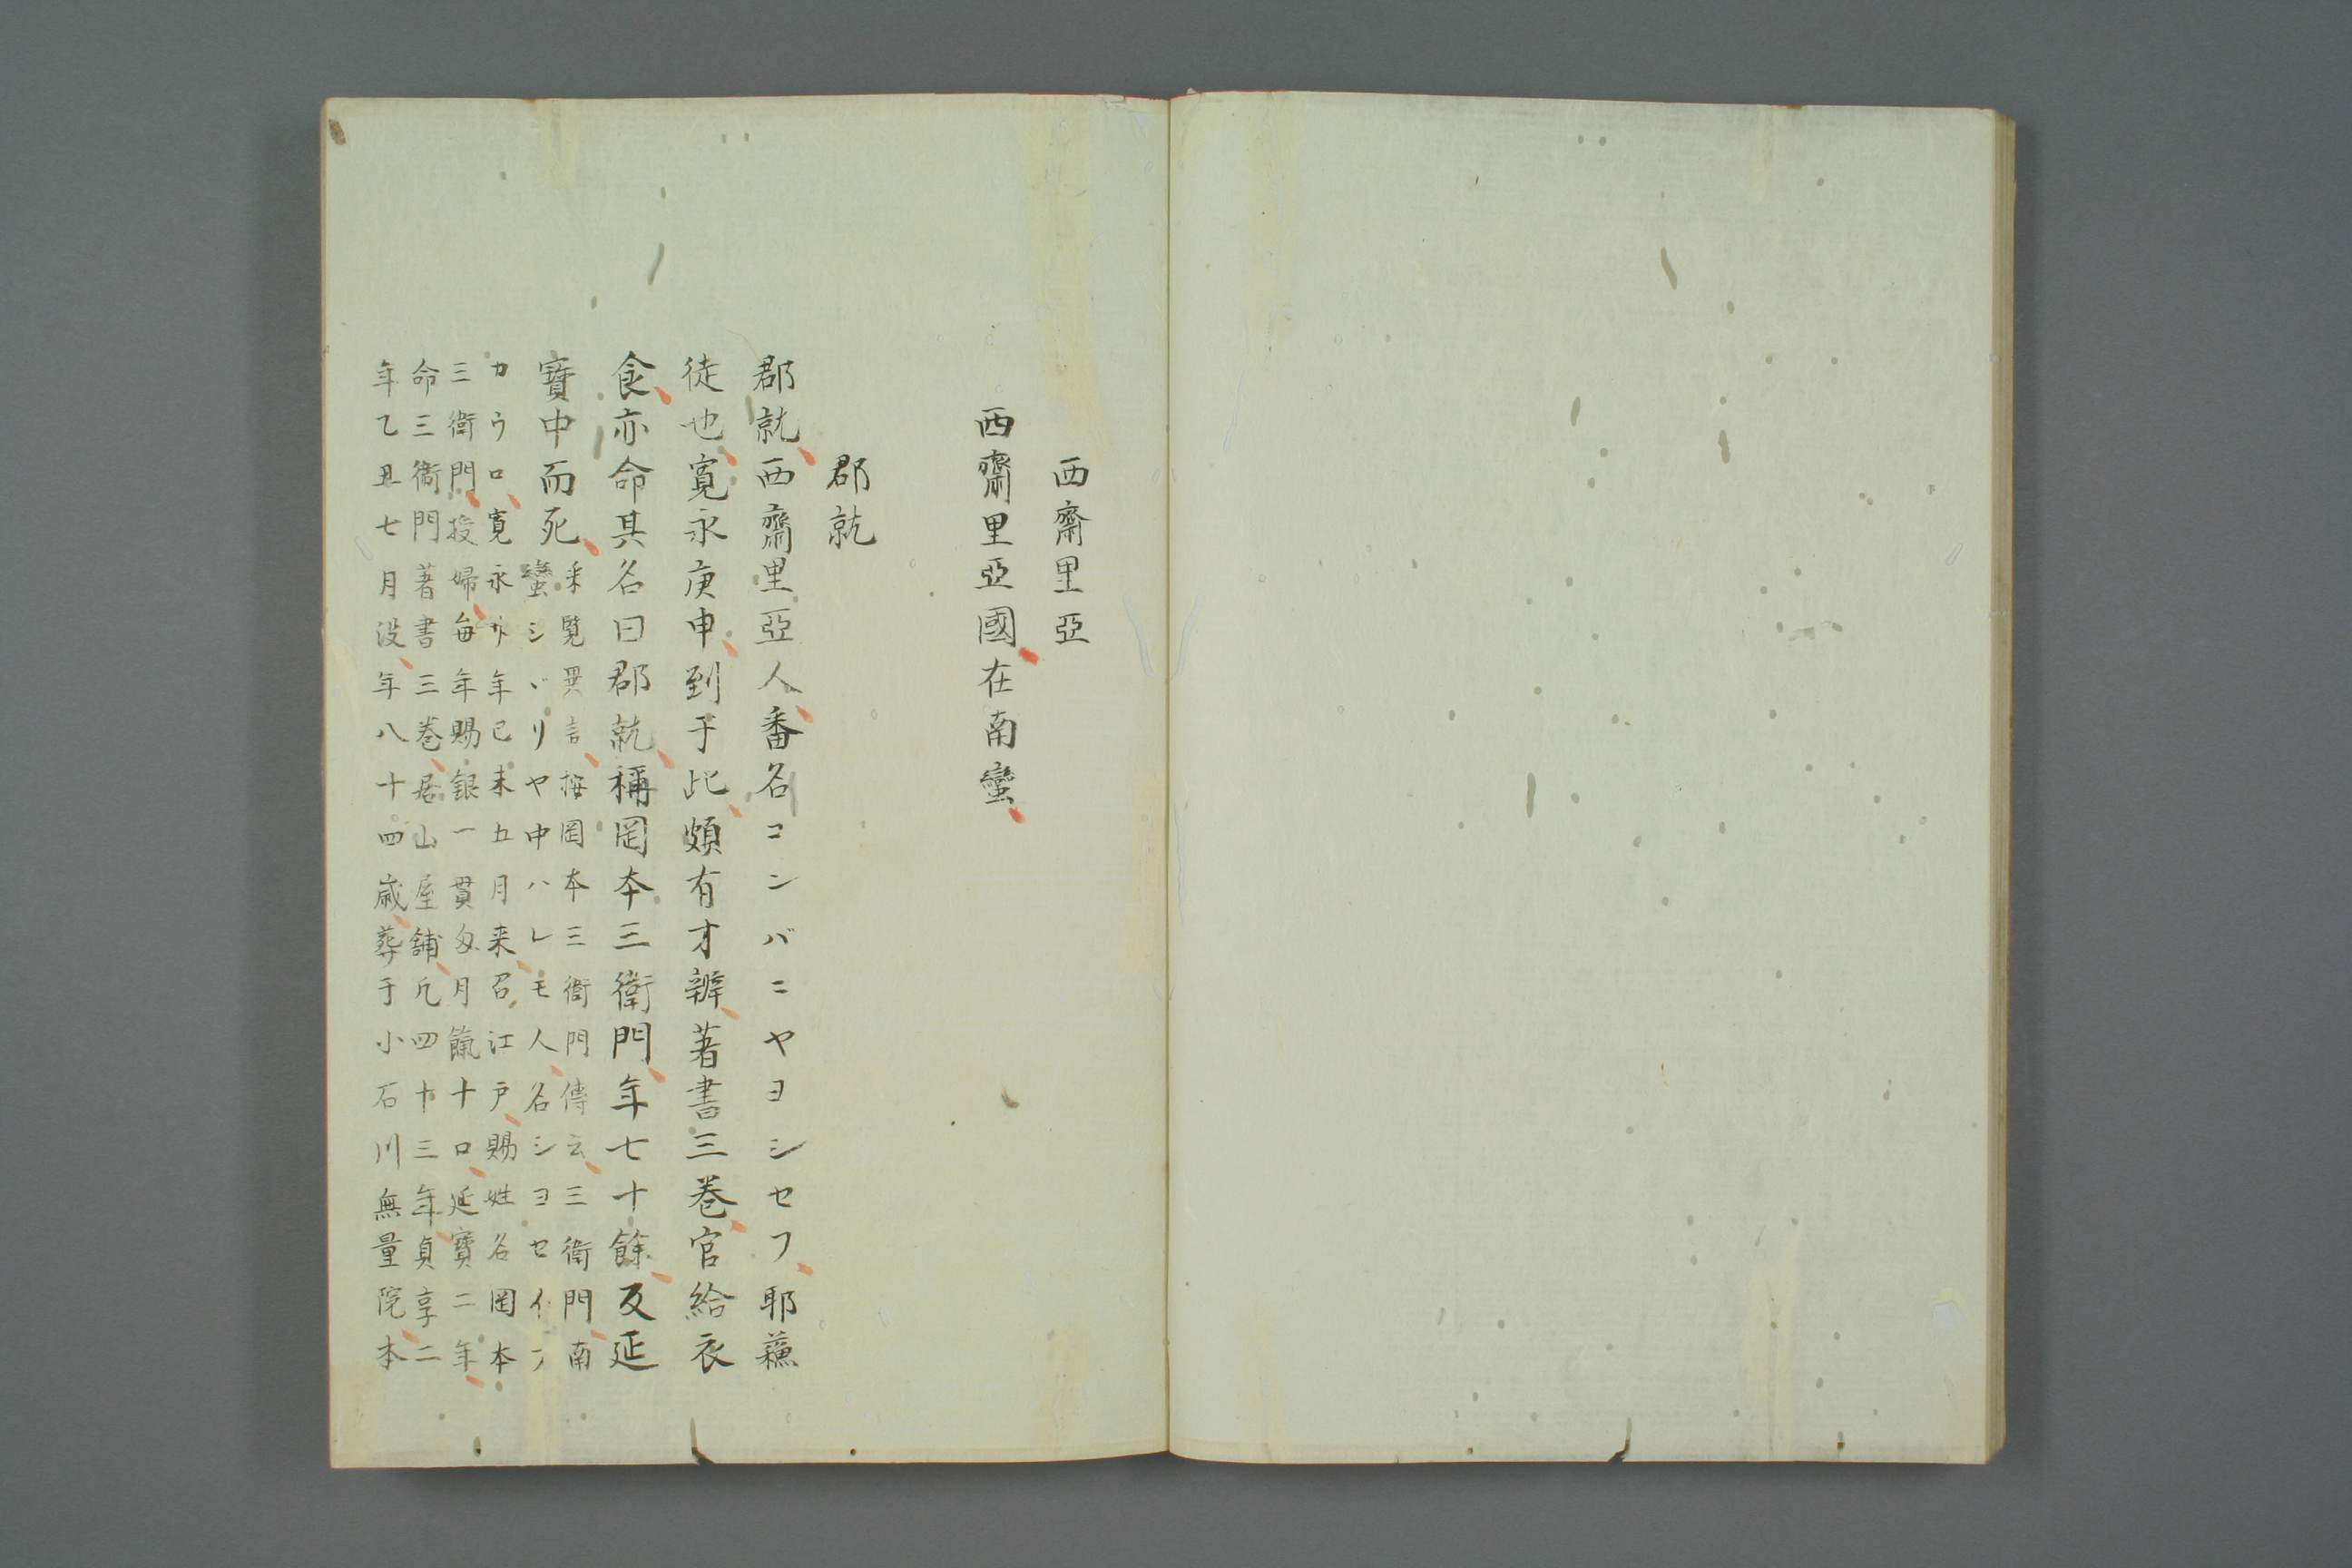 西齋里亞
西齋里亞國在南蠻
郡就
郡就西齋里亞人番名コンバニヤヨシセフ耶蘓
徒也寛永庚申到于此頗有才辨著書三巻官給衣
食亦命其名曰郡就稱罔本三衛門年七十餘及延
寶中而死
釆覧異言按罔本三衛門傳云三衛門南
蠻シヽリヤ中ハレモ人名シヨセイフ
カウロ寛永廿年已未五月来召江戸賜姓名罔本
三衛門授婦毎年賜銀一貫匁月餼十口延寶二年
命三衛門著書三巻居山屋舗凡四十三年貞享二
年乙丑七月没年八十四歳葬于小石川無量院本